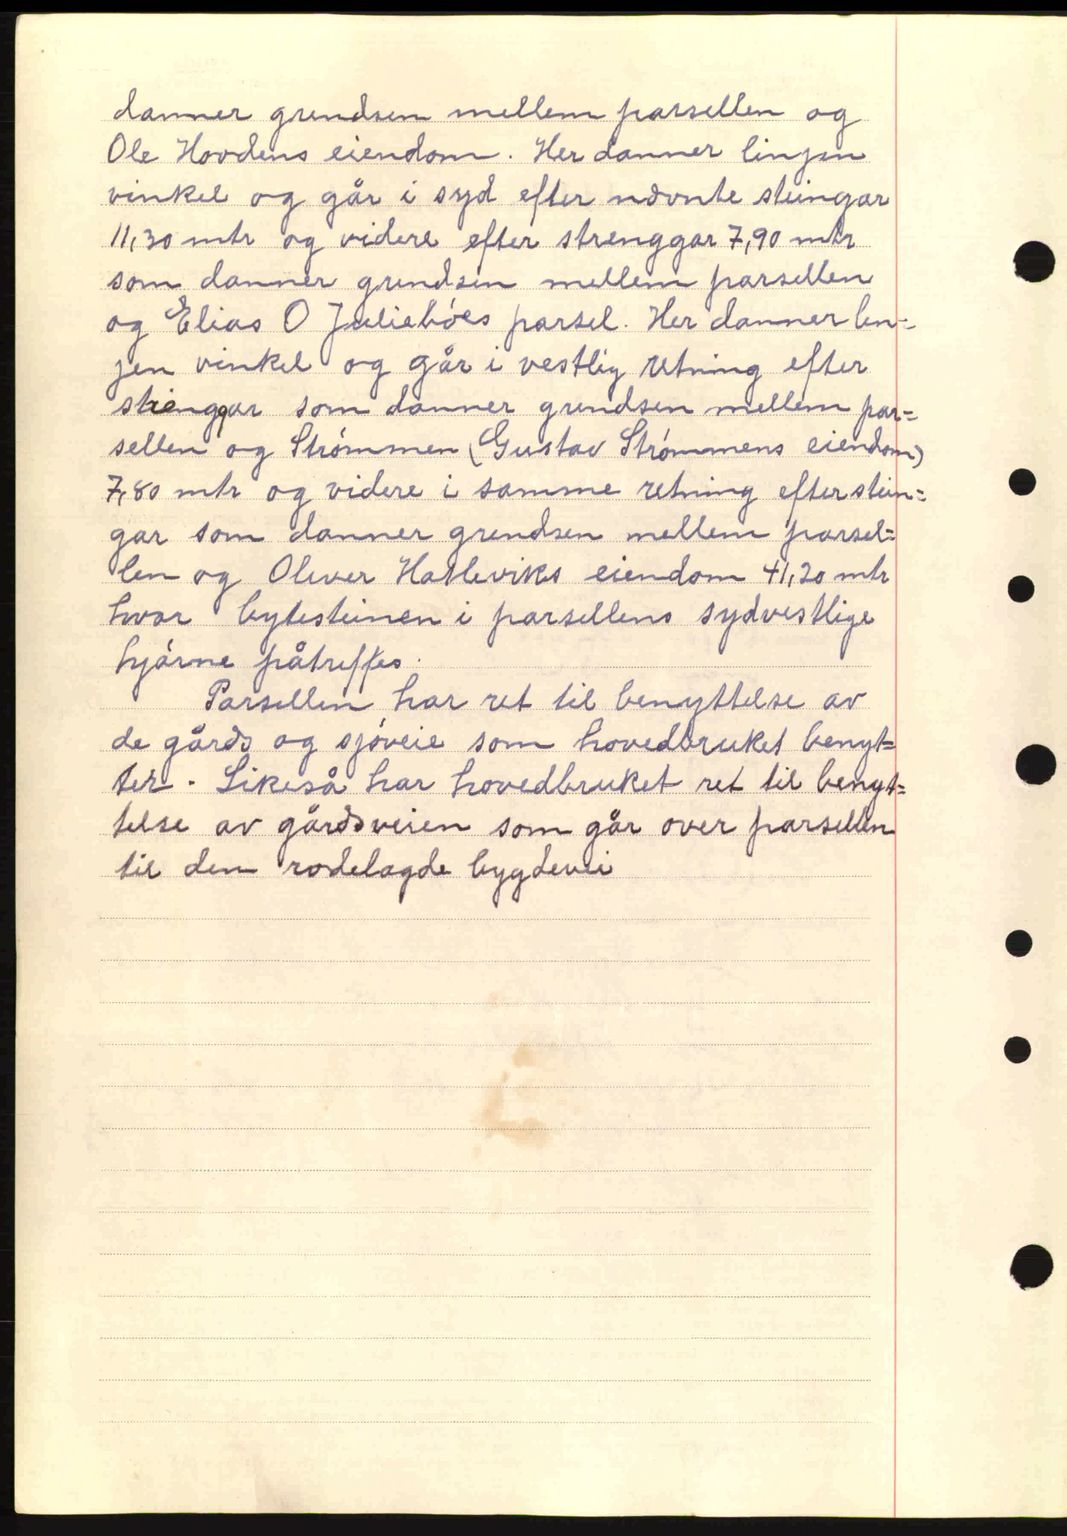 danner grendsen mellem parsellen og
Ole Hovdens eiendom. Her danner linjen
vinkel og går i syd efter nævnte steingar
11,30 mtr og videre efter strenggar 7,90 mtr
som danner grendsen mellem parsellen
og Elias O Juliebóes parsel. Her danner lin-
jen vinkel og går i vestlig retning efter
strenggar som danner grendsen mellem par=
sellen og Strómmen (Gustav Strómmens eiendom)
7,80 mtr og videre i samme retning efter stein=
gar som danner grendsen mellem parsel=
len og Oliver Hatleviks eiendom 41,20 mtr
hvor bytesteinen i parsellens sydvestlige
hjórne påtreffes.
Parsellen har ret til benyttelse av
de gårds og sjóveie som hovedbruket benyt=
ter. Likeså har hovedbruket ret til benyt=
telse av gårdsveien som går over parsellen
til den rodelagde bygdevei